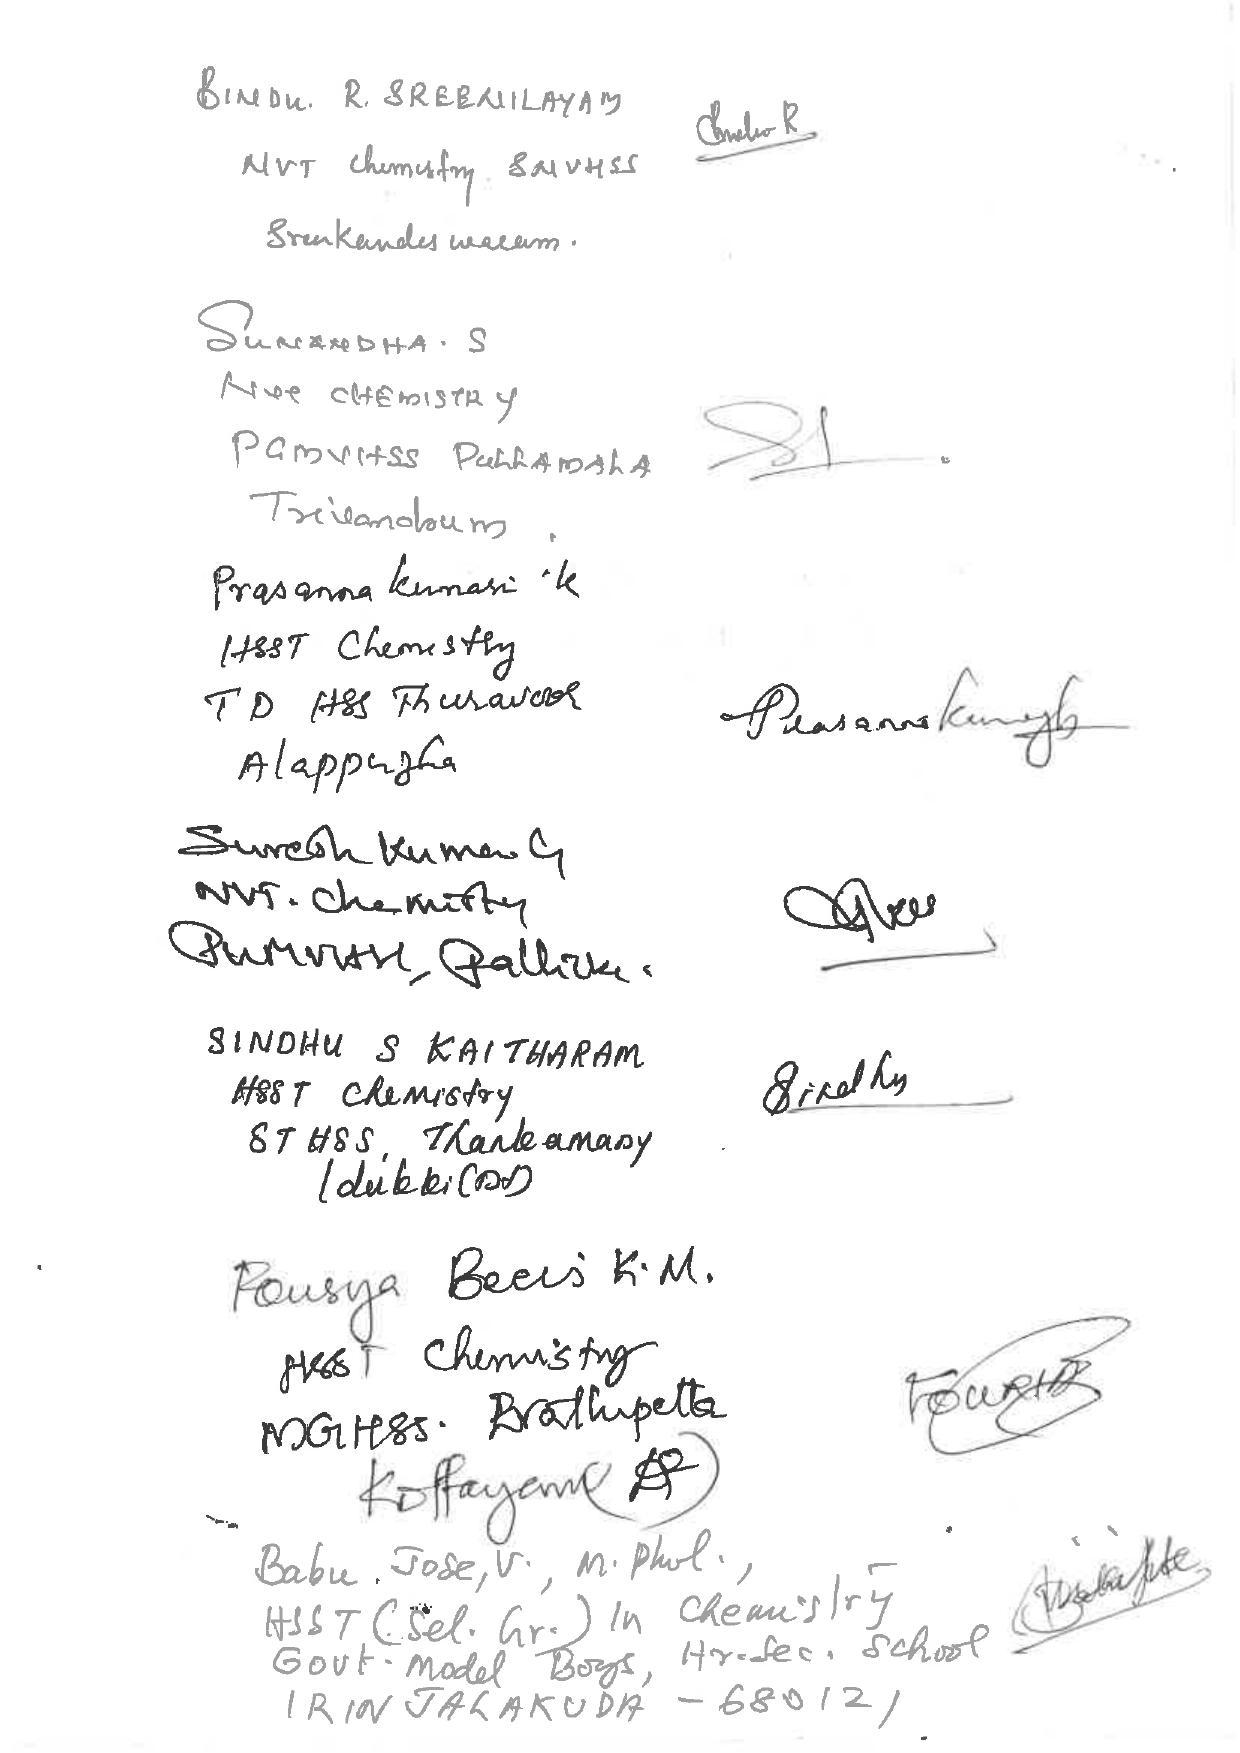 BINDU. R. SREENILAYAM
Bindu R
NVT Chemistry SNVHSS
Sreekandeswaram.
SUNANDHA. S
NVT CHEMISTRY
PGMVHSS PULLAMALA
Trivandrum.
Prasanna kumari K
HSST Chemistry
TD HSS Thuravoor
Prasannakumari
Alappuzha
Suresh Kumar G
NVT. Chemistry
SINDHU S KAITHARAM
Sindhu
HSST Chemistry
ST HSS, Thankamany
Idukki (Dt)
Fousya Beevi K.M.
HSST Chemistry
MGHSS. Erattupetta
Kottayam (Dt)
Babu. Jose, V., M. Phil.,
HSST (Sel. Gr.) In Chemistry
Govt. Model Boys, Hr. Sec. School
IRINJALAKUDA - 680121